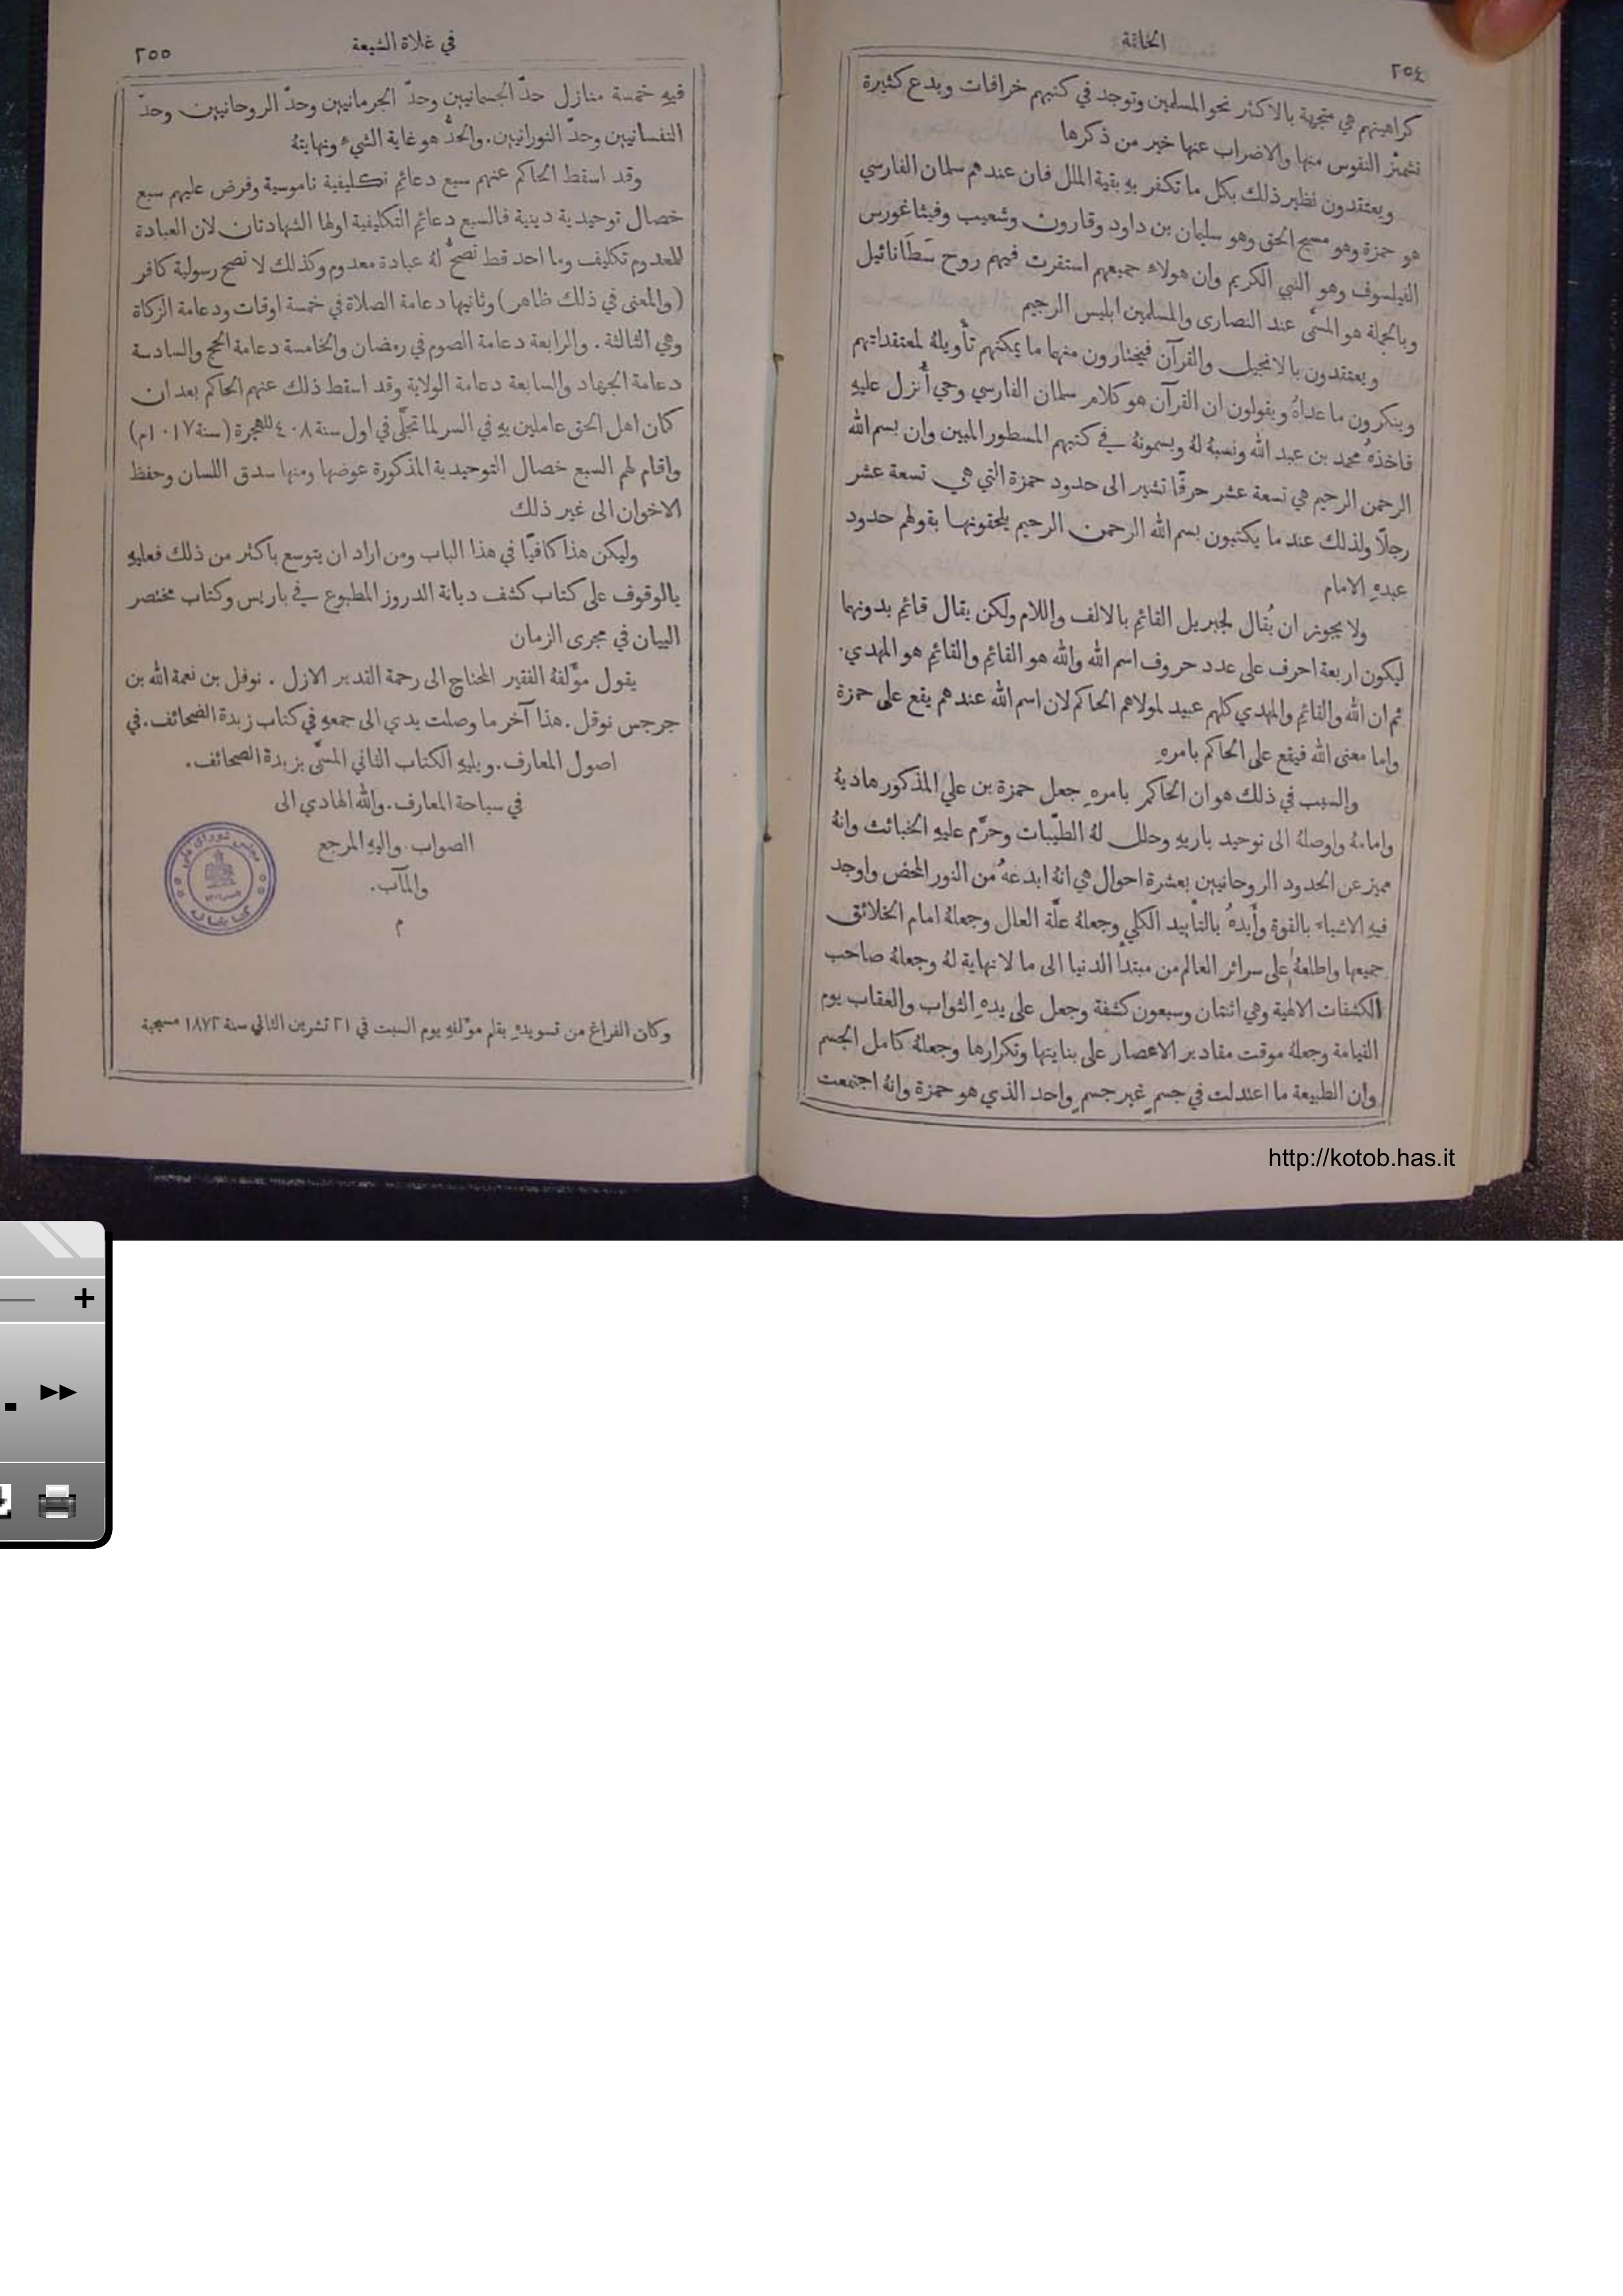 الخاتمة
٢٥٤
كراهيتهم هي متجهة بالاكثر نحو المسلمين وتوجد في كتبهم خرافات وبدع كثيرة
تشمئز النفوس منها والاضراب عنها خير من ذكرها
ويعتقدون نظير ذلك بكل ما تكفر بهِ بقية الملل فان عندهم سلمان الفارسي
هو حمزة وهو مسيح الحق وهو سليمان بن داود وقارون وشعيب وفيثاغورس
الفيلسوف وهو النبي الكريم وان هولاء جميعهم استقرت فيهم روح سَطَانائيل
وبالجملة هو المسمَّى عند النصارى والمسلمين ابليس الرجيم
ويعتقدون بالانجيل والقرآن فيختارون منهما ما يمكنهم تأويلهُ لمعتقداتهم
وينكرون ما عداهُ ويقولون ان القرآن هو كلام سلمان الفارسي وحي أُنزل عليهِ
فاخذهُ محمد بن عبد الله ونسبهُ لهُ ويسمونهُ في كتبهم المسطور المبين وان بسم الله
الرحمن الرحيم هي تسعة عشر حرفًا تشير الى حدود حمزة التي هي تسعة عشر
رجلًا ولذلك عند ما يكتبون بسم الله الرحمن الرحيم يلحقونها بقولهم حدود
عبدهِ الامام
ولا يجوز ان يُقال لجبريل القائم بالالف واللام ولكن يقال قائم بدونهما
ليكون اربعة احرف على عدد حروف اسم الله والله هو القائم والقائم هو المهدي.
ثم ان الله والقائم والمهدي كلهم عبيد لمولاهم الحاكم لان اسم الله عندهم يقع على حمزة
واما معنى الله فيقع على الحاكم بامرهِ
والسبب في ذلك هو ان الحاكم بامرهِ جعل حمزة بن علي المذكور هاديهُ
وامامهُ واوصلهُ الى توحيد باريهِ وحلل لهُ الطيّبات وحرَّم عليهِ الخبائث وانهُ
مميز عن الحدود الروحانيين بعشرة احوال هي انهُ ابدعهُ من النور المحض واوجد
فيهِ الاشياء بالقوة وأَيدهُ بالتأييد الكلي وجعلهُ علّة العال وجعلهُ امام الخلائق
جميعها واطلعهُ على سرائر العالم من مبتدأ الدنيا الى ما لا نهاية لهُ وجعلهُ صاحب
الكشفات الالهية وهي اثنتان وسبعون كشفة وجعل على يدهِ الثواب والعقاب يوم
القيامة وجعلهُ موقت مقادير الاعصار على بنايتها وتكرارها وجعلهُ كامل الجسم
وان الطبيعة ما اعتدلت في جسمٍ غير جسمٍ واحد الذي هو حمزة وانهُ اجتمعت
http://kotob.has.it
في غلاة الشيعة
٢٥٥
فيهِ خمسة منازل حدّ الجسمانيين وحدّ الجرمانيين وحدّ الروحانيين وحدّ
النفسانيين وحدّ النورانيين. والحدُّ هو غاية الشيء ونهايتهُ
وقد اسقط الحاكم عنهم سبع دعائم تكليفية ناموسية وفرض عليهم سبع
خصال توحيدية دينية فالسبع دعائم التكليفية اولها الشهادتان لان العبادة
للمعدوم تكليف وما احد قط تصحُّ لهُ عبادة معدوم وكذالك لا تصح رسولية كافر
(والمعنى في ذلك ظاهر) وثانيها دعامة الصلاة في خمسة اوقات ودعامة الزكاة
وهي الثالثة. والرابعة دعامة الصوم في رمضان والخامسة دعامة الحج والسادسة
دعامة الجهاد والسابعة دعامة الولاية وقد اسقط ذلك عنهم الحاكم بعد ان
كان اهل الحق عاملين بهِ في السر لما تجلَّى في اول سنة ٤٠٨ للهجرة (سنة ١٠١٧م)
واقام لهم السبع خصال التوحيدية المذكورة عوضها ومنها سدق اللسان وحفظ
الاخوان الى غير ذلك
وليكن هذا كافيًا في هذا الباب ومن اراد ان يتوسع باكثر من ذلك فعليهِ
بالوقوف على كتاب كشف ديانة الدروز المطبوع في باريس وكتاب مختصر
البيان في مجرى الزمان
يقول مؤلفهُ الفقير المحتاج الى رحمة القدير الازل. نوفل بن نعمة الله بن
جرجس نوفل. هذا آخر ما وصلت يدي الى جمعهِ في كتاب زبدة الصحائف. في
اصول المعارف. ويليهِ الكتاب الثاني المسمَّى بزبدة الصحائف.
في سياحة المعارف. والله الهادي الى
الصواب. واليهِ المرجع
والمآب.
م
مجلس شورای ملی
کتابخانه
وكان الفراغ من تسويدهِ بقلم مؤلفهِ يوم السبت في ٢١ تشرين الثاني سنة ١٨٧٢ مسيحية